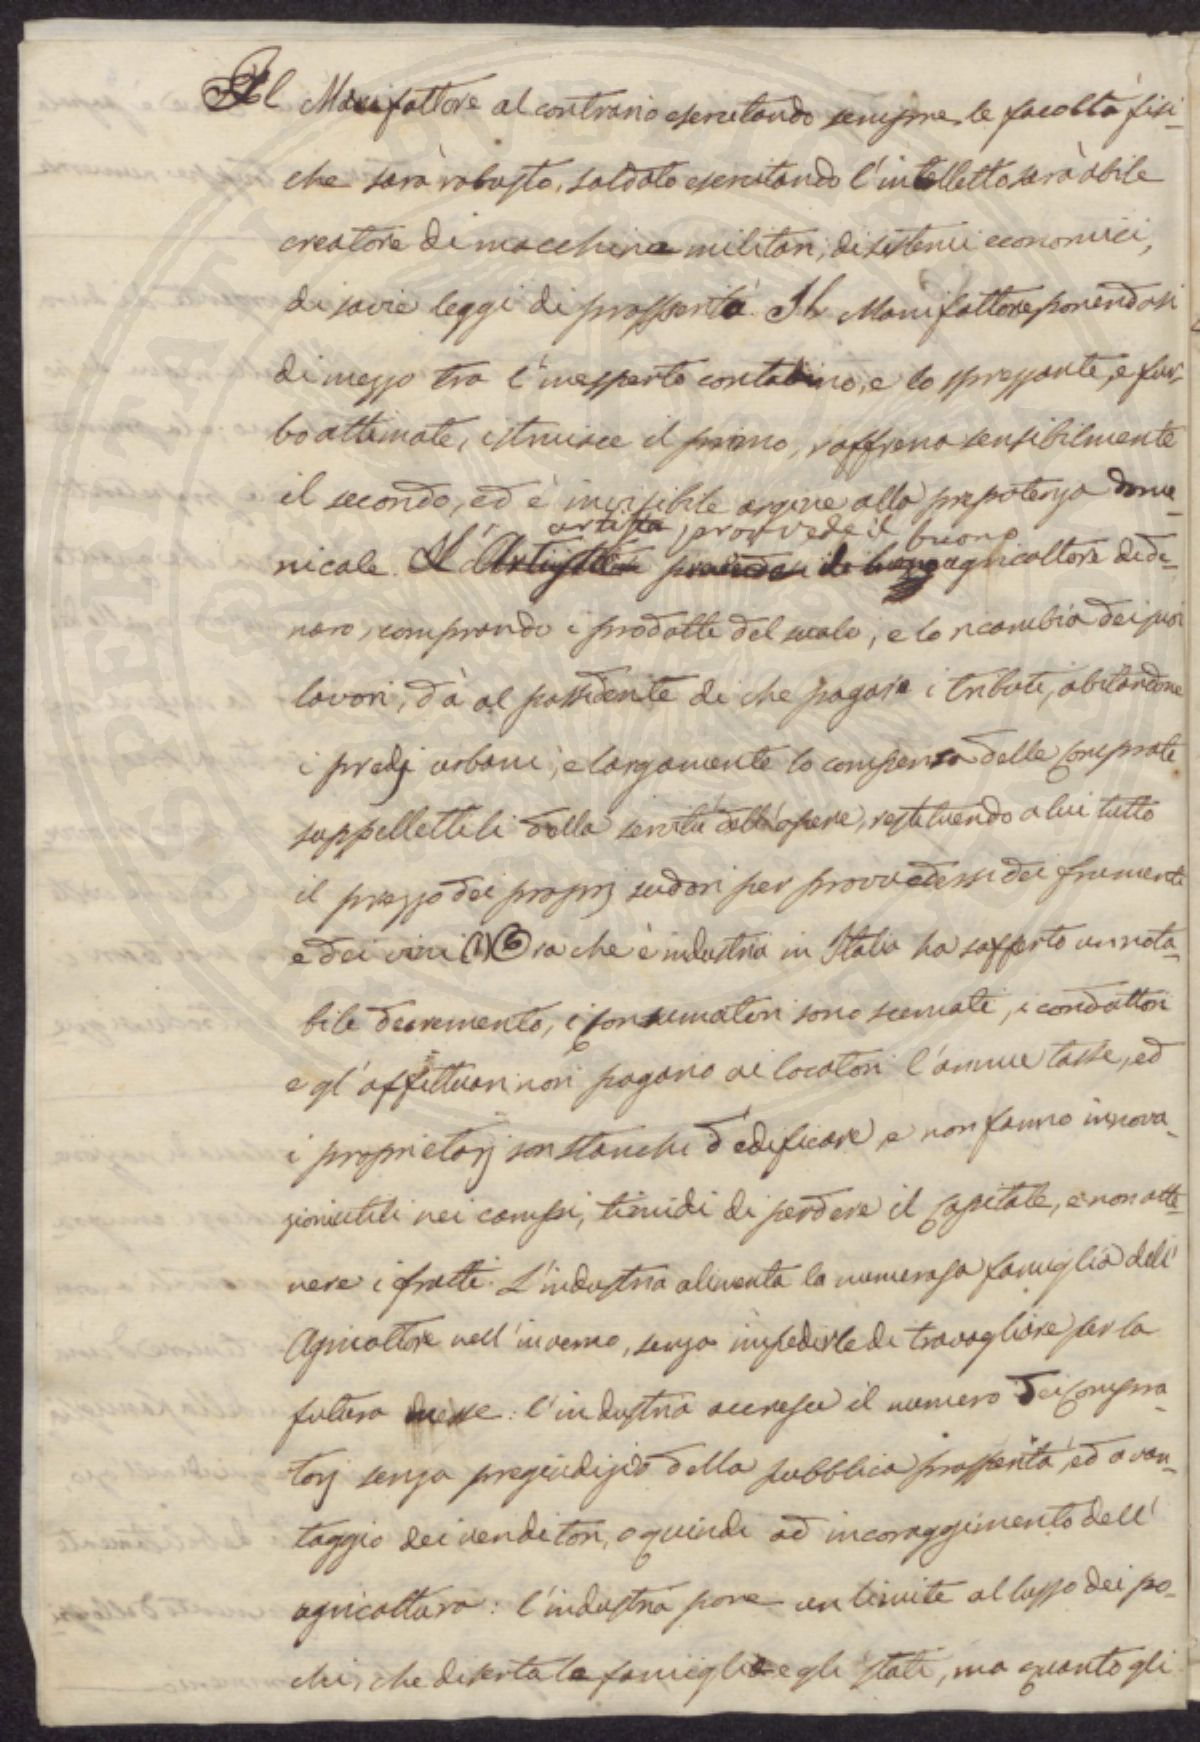 Il Manifattore al contrario esercitando sempre le facoltà fisi-
che sarà robusto, soldato esercitando l'intelletto sarà abile
creatore di macchine militari, di sistemi economici,
di savie leggi di prosperità. Il Manifattore ponendosi
di mezzo tra l'inesperto contadino, e lo sprezzante, e fur-
bo ottimate, istruisce il primo, raffrena sensibilmente
il secondo, ed è invisibile argine alla prepotenza dome-
artista provvede il buono
nicale. L'Artista il buono agricoltore di da-
naro, comprando i prodotti del suolo, e lo ricambia dei suoi
lavori, dà al possidente di che pagare i tributi, abitandone
i predj urbani, e largamente lo compensa delle comprate
suppellettili colla servitù dell'opere, restituendo a lui tutto
il prezzo dei proprj sudori per provvedersi dei frumenti
e dei vini (1) Ora che è industria in Italia ha sofferto un nota-
bile decremento, i consumatori sono scemati, i condottori
e gl'affittuari non pagano ai locatori l'annue tasse, ed
i proprietarj son stanchi d'edificare, e non fanno innova-
zioni utili nei campi, timidi di perdere il capitale, e non otte-
nere i frutti. L'industria alimenta la numerosa famiglia dell'
Agricoltore nell'inverno, senza impedirle di travagliare per la
futura messe: l'industria accresce il numero dei compra-
torj senza pregiudizio della pubblica prosperità, ed a van-
taggio dei venditori, e quindi ad incoraggimento dell'
agricoltura: l'industria pone un limite al lusso dei po-
chi, che diserta le famiglie e gli stati, ma quanto gli